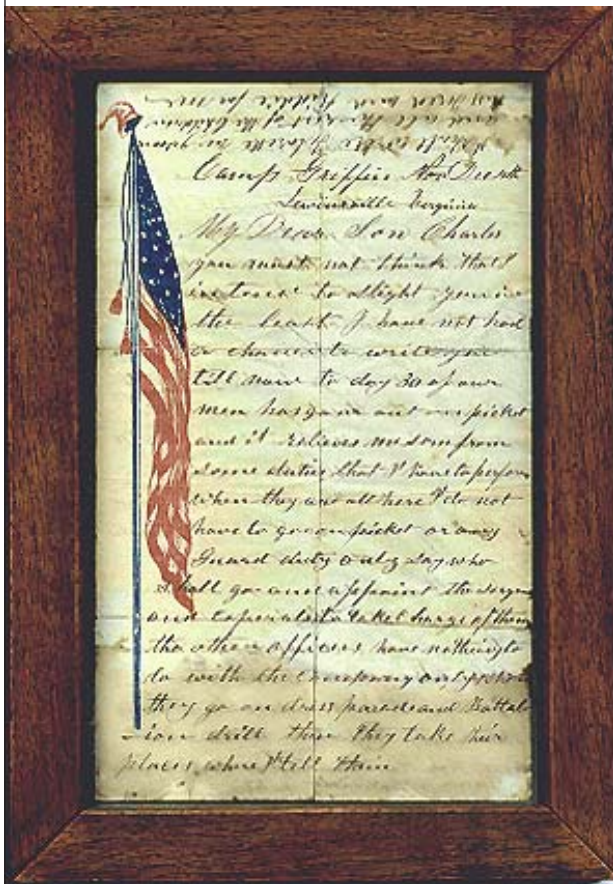 Camp Griffin Nov Dec 4th
Lewinsville Virginia
My Dear Son Charles
you must not think that I
intend to slight you in
the least I have not had
a chance to write you
till now to day 30 of our
men has gone out on picket
and it relieves me som from
some duties that I have to perform
when they are all here I do not
have to go on picket or any
Guard duty only say who
shall go and appoint the
and to take charge of them
the other officers have nothing to
do with the company only when
they go on dress parade and Battal
ion drill then they take their
places where I tell them
and all the rest of the children
for me